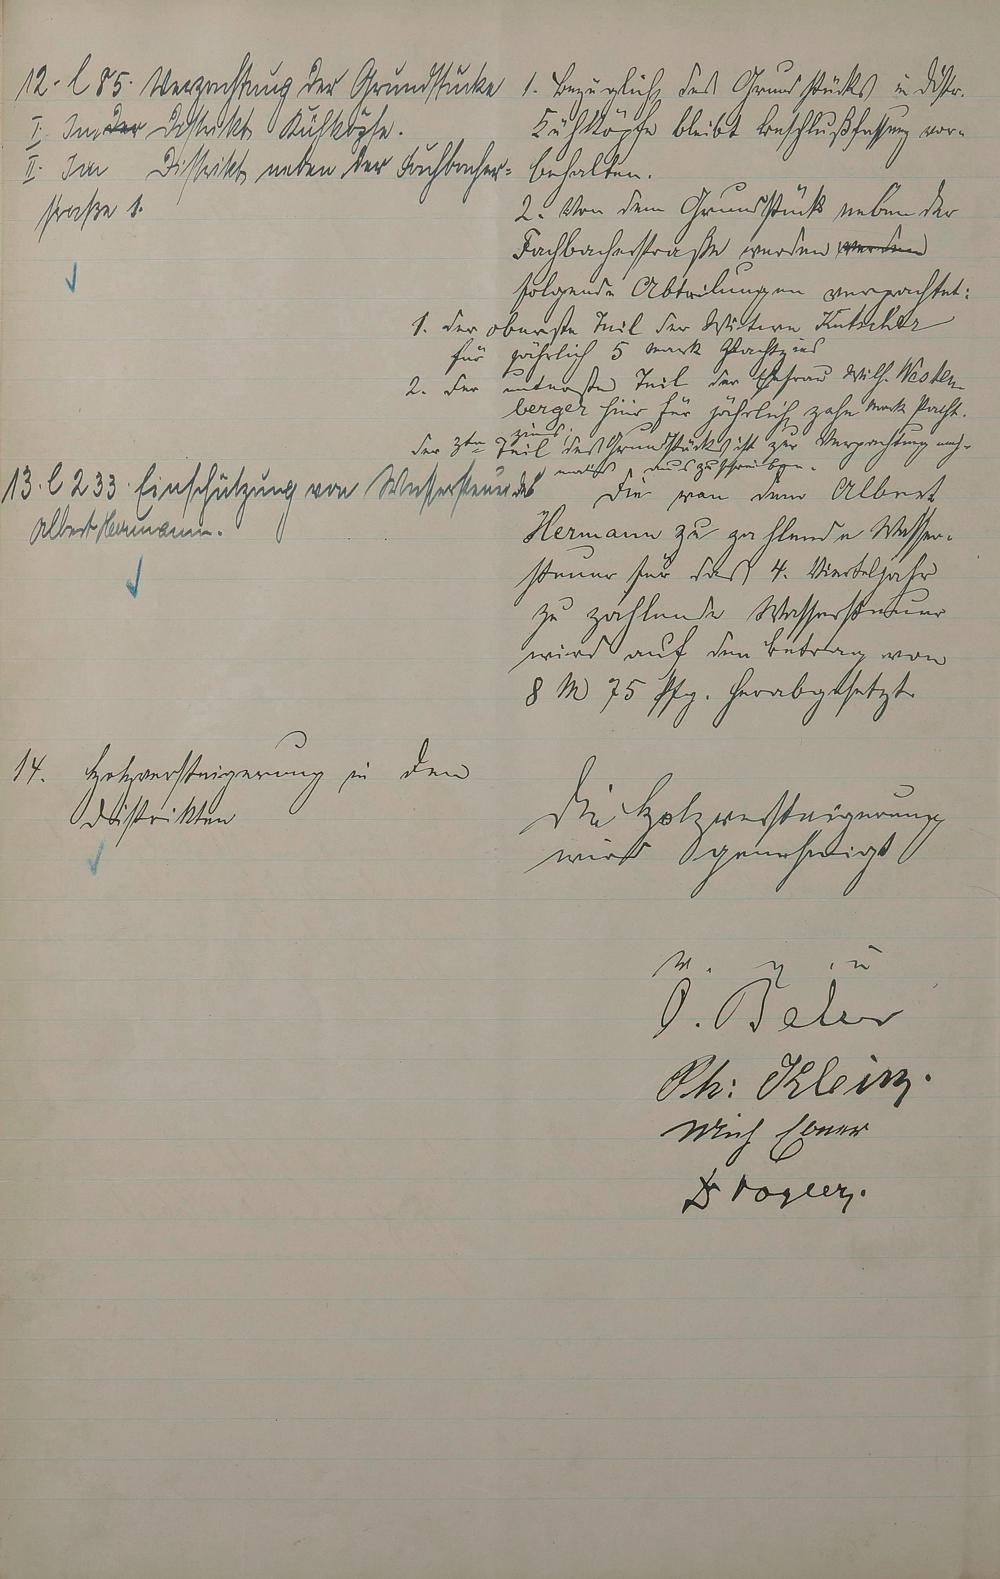 12. l 85. Verpachtung der Grundstücke
I. Im der Distrikt Kühköpfe.
II. Im Distrikt neben der Fachbacher-
straße 1.
1. Bezüglich des Grundstücks in Distr.
Kühköpfe bleibt Beschlußfassung vor-
behalten.
2. Von dem Grundstück neben der
Fachbacherstraße werden werden
folgende Abteilungen verpachtet:
1. der oberste Teil der Witwe
für jährlich 5 Mark Pachtzins
2. der unterste Teil der Ehefrau Wilh. Westen-
berger hier für jährlich zehn Mark Pacht-
zins.
der 3te Teil des Grundstücks ist zur Verpachtung noch-
mals auszuschreiben.
13. l 233. Einschätzung von Wassersteuer des
Albert Hermann.
Die von dem Albert
Hermann zu zahlende Wasser-
steuer für das 4. Vierteljahr
zu zahlende Wassersteuer
wird auf den Betrag von
8 M 75 Pfg. herabgesetzt
14. Holzversteigerung in den
Distrikten
Die Holzversteigerung
wird genehmigt
v. g. u.
Ph: Klein.